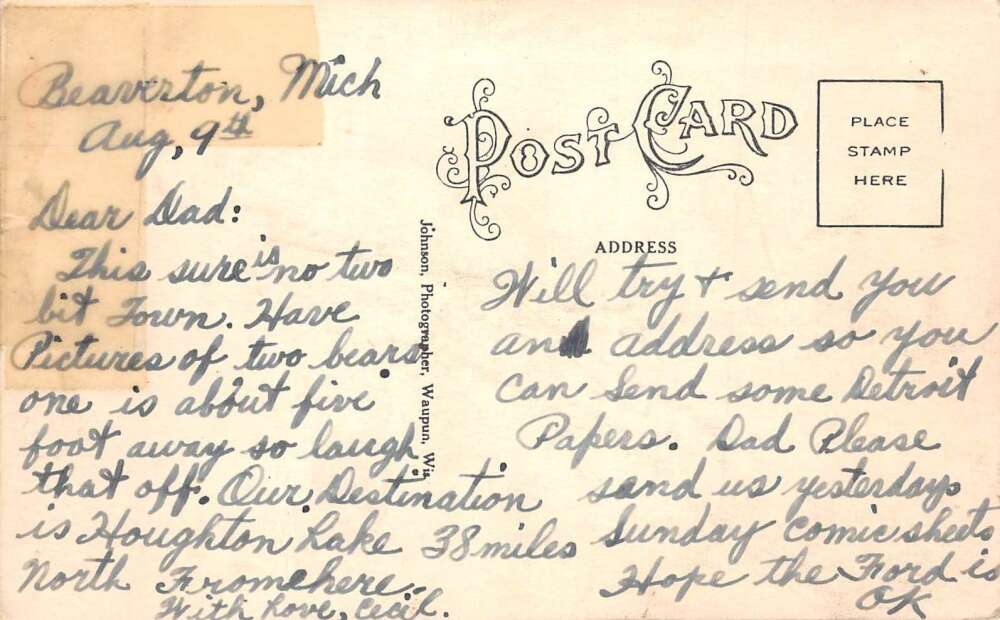 Beaverton, Mich
Aug, 9th
Dear Dad:
This sure is no two
bit Town. Have
Pictures of two bears
one is about five
foot away so laugh
that off. Our Destination
is Houghton Lake 38 miles
North From here.
With Love, Cecil.
Johnson, Photographer, Waupun, Wis.
POST CARD
PLACE
STAMP
HERE
ADDRESS
Will try + send you
an address so you
can send some Detroit
Papers. Dad Please
send us yesterdays
Sunday comic sheets
Hope the Ford is
OK